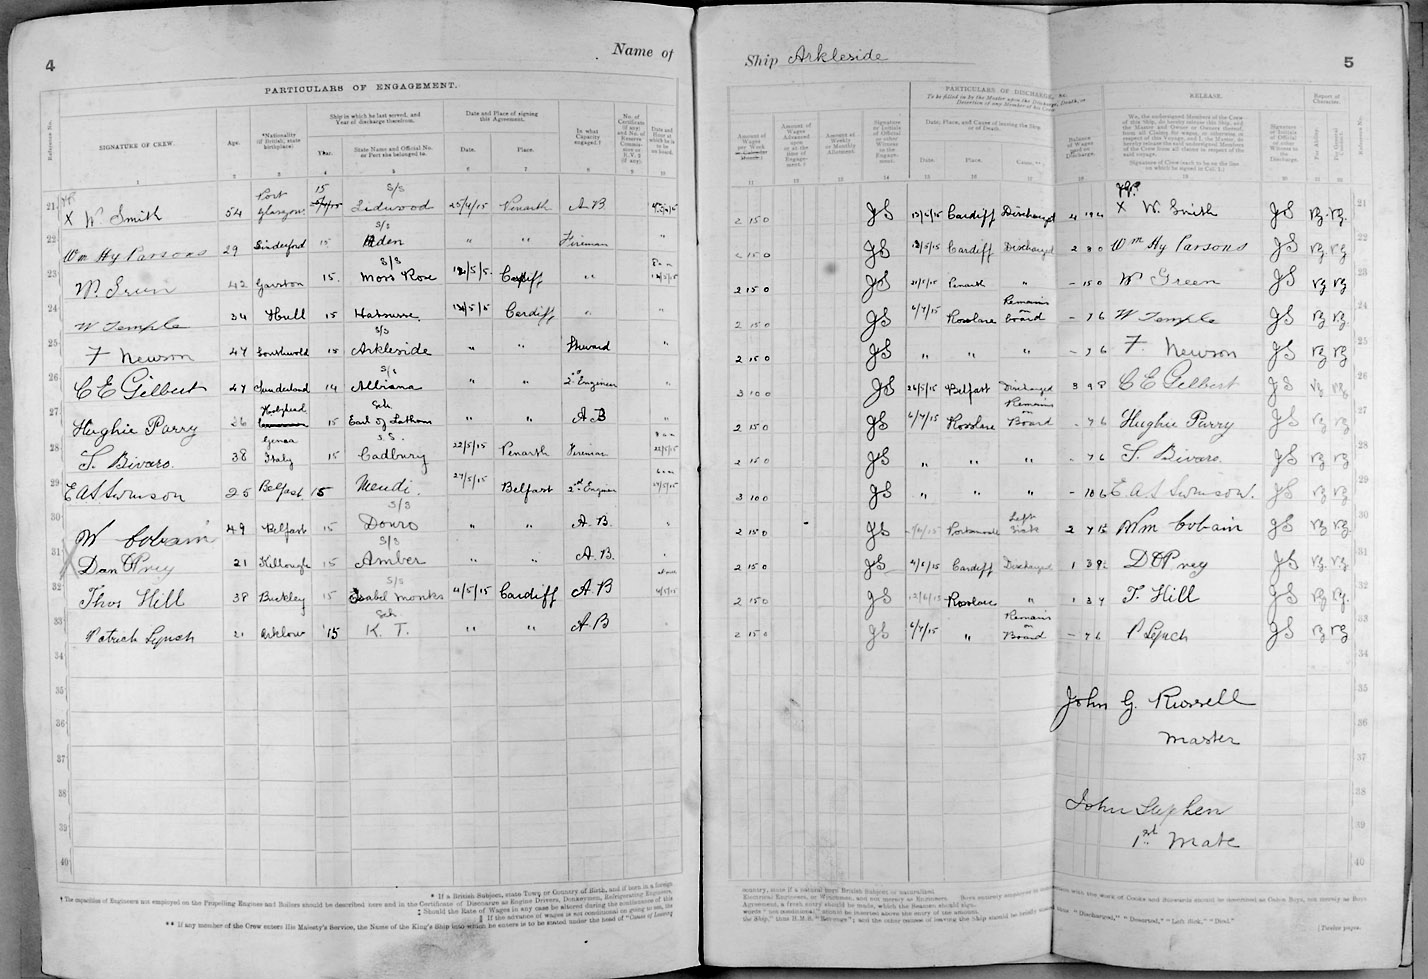 4
Name of
PARTICULARS OF ENGAGEMENT.
Reference No.
SIGNATURE OF CREW.
Age.
*Nationality (if British, state birthplace)
Ship in which he last served, and Year of discharge therefrom.
Year.
State Name and Official No. or Port she belonged to.
Date and Place of signing this Agreement.
Date.
Place.
In what Capacity engaged.†
No. of Certificate (if any) and No. of Reserve Commission or R.V. 2 (if any).
Date and Hour at which he is to be on board.
1 2 3 4 5 6 7 8 9 10
21 X W. Smith 54 Port Glasgow 15 S/S Lidwood 25/4/15 Penarth A B
22 Wm Hy Parsons 29 Sinderford 15 S/S Aden " " Fireman "
23 W. Green 42 Garston 15. S/S Moss Rose 12/5/15. Cardiff " 8 am 13/5/15
24 W Temple 34 Hull 15 13/5/15 Cardiff " "
25 F Newson 47 Southwold 15 S/S Arkleside " " Steward "
26 C E Gilbert 47 Sunderland 14 S/S Albiana " " 2nd Engineer "
27 Hughie Parry 26 Holyhead 15 Sch. Earl of Lathom " " A B "
28 S. Bivaro. 38 Genoa Italy 15 S.S. Cadbury 22/5/15 Penarth Fireman 8 am 22/5/15
29 E A S Swinson 25 Belfast 15 Mendi. 27/5/15 Belfast 2nd Engineer 6 am 27/5/15
30 W Cobain 49 Belfast 15 S/S Douro " " A. B. "
31 Dan O Prey 21 Killough 15 S/S Amber " " A. B. "
32 Thos Hill 38 Buckley 15 S/S Isabel Monks 4/5/15 Cardiff A B
33 Patrick Lynch 21 Arklow '15 Sch. K. T. " " A B "
34
35
36
37
38
39
40
* If a British Subject, state Town or Country of Birth, and if born in a foreign
† The capacities of Engineers not employed on the Propelling Engines and Boilers should be described here and in the Certificate of Discharge as Engine Drivers, Donkeymen, Refrigerating Engineers,
‡ Should the Rate of Wages in any case be altered during the continuance of this
§ If the advance of wages is not conditional on going to sea, the
** If any member of the Crew enters His Majesty's Service, the Name of the King's Ship into which he enters is to be stated under the head of "Cause of Leaving
Ship Arkleside
5
PARTICULARS OF DISCHARGE, &c.
To be filled in by the Master upon the Discharge, Death, or Desertion of any Member of his Crew.
RELEASE.
Report of Character.
Amount of Wages per Week or Calendar Month.‡
Amount of Wages Advanced upon or at the time of Engagement.§
Amount of Weekly or Monthly Allotment.
Signature or Initials of Official or other Witness to the Engagement.
Date, Place, and Cause of leaving the Ship or of Death.
Date.
Place.
Cause.**
Balance of Wages paid on Discharge.
We, the undersigned Members of the Crew of this Ship, do hereby release this Ship, and the Master and Owner or Owners thereof, from all Claims for Wages, or otherwise in respect of this Voyage, and I, the Master, do hereby release the undersigned Members of the Crew from all claims in respect of the said voyage.
Signature of Crew (each to be on the line on which he signed in Col. 1.)
Signature or Initials of Official or other Witness to the Discharge.
For Ability.
For General Conduct.
Reference No.
11 12 13 14 15 16 17 18 19 20 21 22
2 15 0 JS 12/6/15 Cardiff Discharged 4 19 6 X W. Smith JS VG. VG. 21
2 15 0 JS 12/5/15 Cardiff Discharged 2 8 0 Wm Hy Parsons JS VG VG 22
2 15 0 JS 21/5/15 Penarth " - 15 0 W Green JS VG VG 23
2 15 0 JS 6/7/15 Rosslare Remains on board - 7 6 W Temple JS VG VG. 24
2 15 0 JS " " " - 7 6 F. Newson JS VG VG 25
3 10 0 JS 26/5/15 Belfast Discharged 3 9 8 C E Gilbert JS VG VG. 26
2 15 0 JS 6/7/15 Rosslare Remains on Board - 7 6 Hughie Parry JS VG VG 27
2 15 0 JS " " " - 7 6 S. Bivaro. JS VG VG 28
3 10 0 JS " " " - 10 6 E A S Swinson. JS VG VG 29
2 15 0 JS Left Sick 2 7 Wm Cobain JS VG VG 30
2 15 0 JS 4/6/15 Cardiff Discharged 1 3 D O Prey JS VG. VG. 31
2 15 0 JS 12/6/15 Rosslare " 1 3 7 T. Hill JS VG VG. 32
2 15 0 JS 6/7/15 " Remains on Board - 7 6 P Lynch JS VG VG 33
34
35
John G. Russell
36
Master
37
38
John Stephen
39
1st Mate
40
country, state if a natural born British Subject or naturalized.
Agreement, a fresh entry should be made, which the Seaman should sign.
words "not conditional" should be inserted above the entry of the amount.
[Twelve pages.